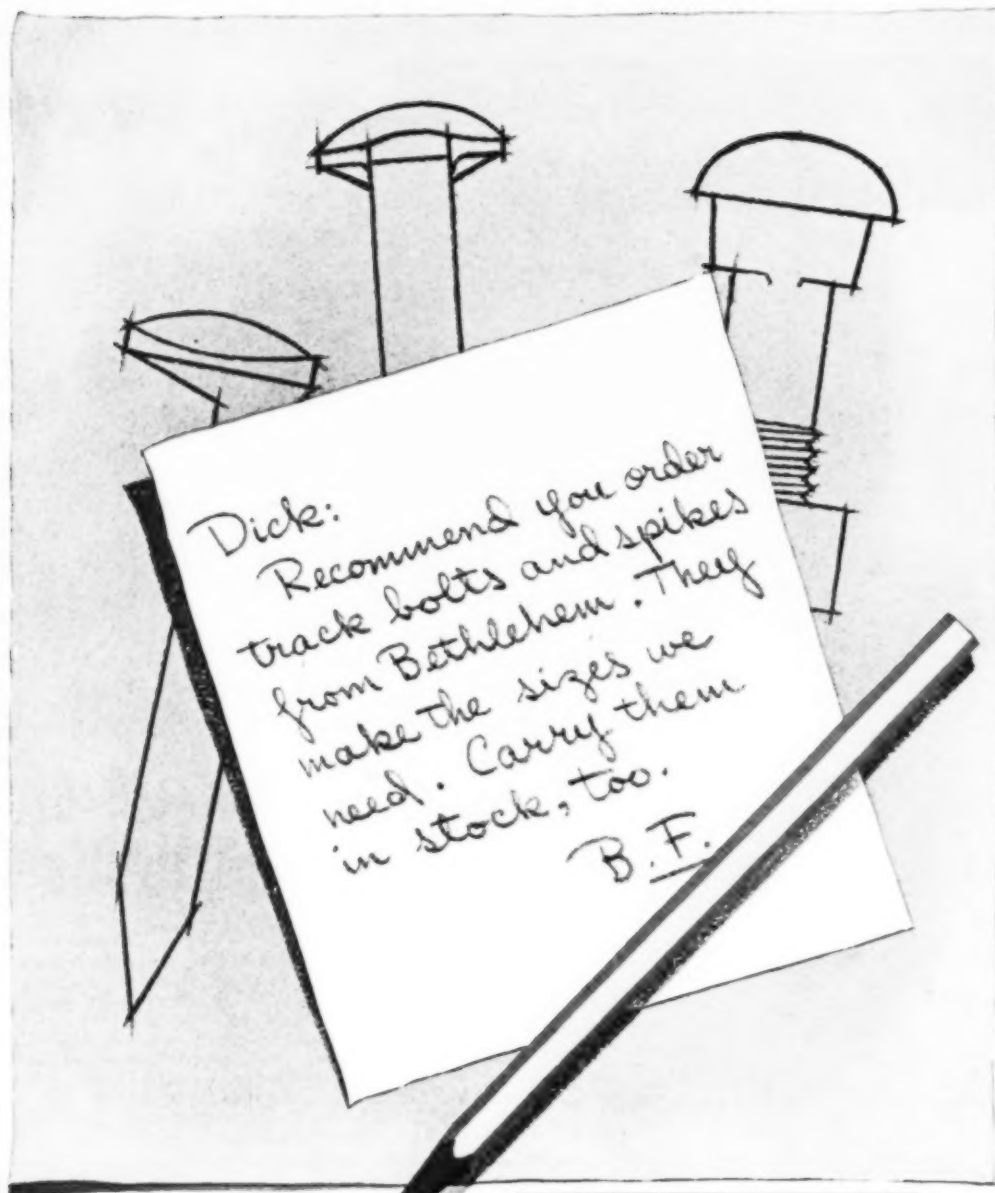 Dick:
Recommend you order
track bolts and spikes
from Bethlehem. They
make the sizes we
need. Carry them
in stock, too.
B.F.